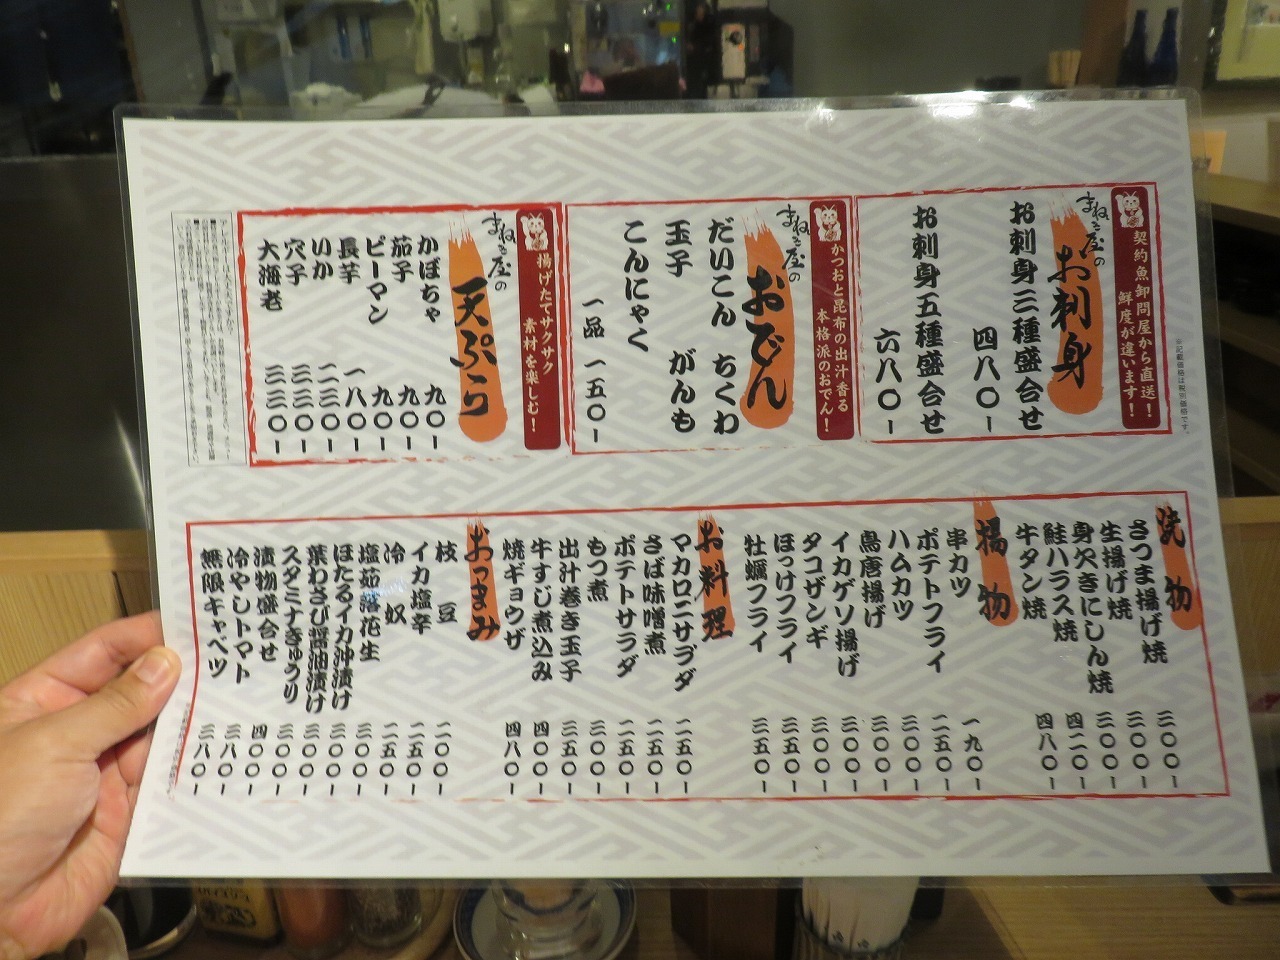 契約魚卸問屋から直送！
鮮度が違います！
まねき屋の
お刺身
お刺身三種盛合せ
四八〇-
お刺身五種盛合せ
六八〇-
※記載価格は税別価格です。
かつおと昆布の出汁香る
本格派のおでん！
まねき屋の
おでん
だいこん ちくわ
玉子 がんも
こんにゃく
一品 一五〇-
揚げたてサクサク
素材を楽しむ！
まねき屋の
天ぷら
かぼちゃ 九〇-
茄子 九〇-
ピーマン 九〇-
長芋 一八〇-
いか 二二〇-
穴子 三三〇-
大海老 三三〇-
焼物
さつま揚げ焼 三〇〇-
生揚げ焼 三〇〇-
身欠きにしん焼 三〇〇-
鮭ハラス焼 四二〇-
牛タン焼 四八〇-
揚物
串カツ 一九〇-
ポテトフライ 二五〇-
ハムカツ 三〇〇-
鳥唐揚げ 三〇〇-
イカゲソ揚げ 三〇〇-
タコザンギ 三〇〇-
ほっけフライ 三五〇-
牡蠣フライ 三五〇-
お料理
マカロニサラダ 二五〇-
さば味噌煮 二五〇-
ポテトサラダ 二五〇-
もつ煮 三〇〇-
出汁巻き玉子 三五〇-
牛すじ煮込み 四〇〇-
焼ギョウザ 四八〇-
おつまみ
枝豆 二〇〇-
イカ塩辛 二五〇-
冷奴 二五〇-
塩茹で落花生 三〇〇-
ほたるイカ沖漬け 三〇〇-
葉わさび醤油漬け 三〇〇-
スタミナきゅうり 三〇〇-
漬物盛合せ 四〇〇-
冷やしトマト 三八〇-
無限キャベツ 三八〇-